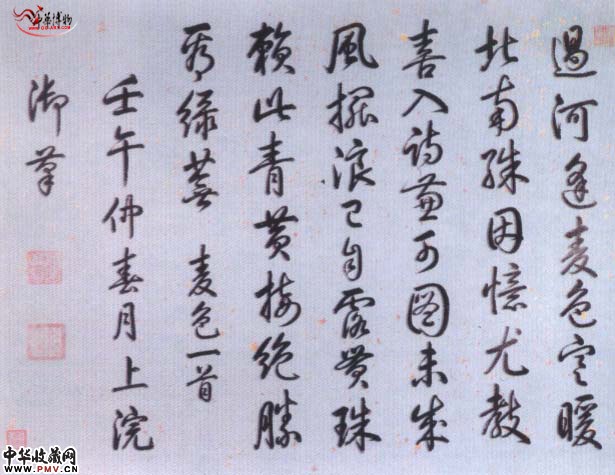 過河逢麦色寒暖
北南殊因憶尤教
喜入詩兼可圖未成
風擺浪已自露貫珠
賴此青黄接绝勝
看緑蕪 麦色一首
壬午仲春月上浣
御筆
中华收藏网
www.PMV.CN